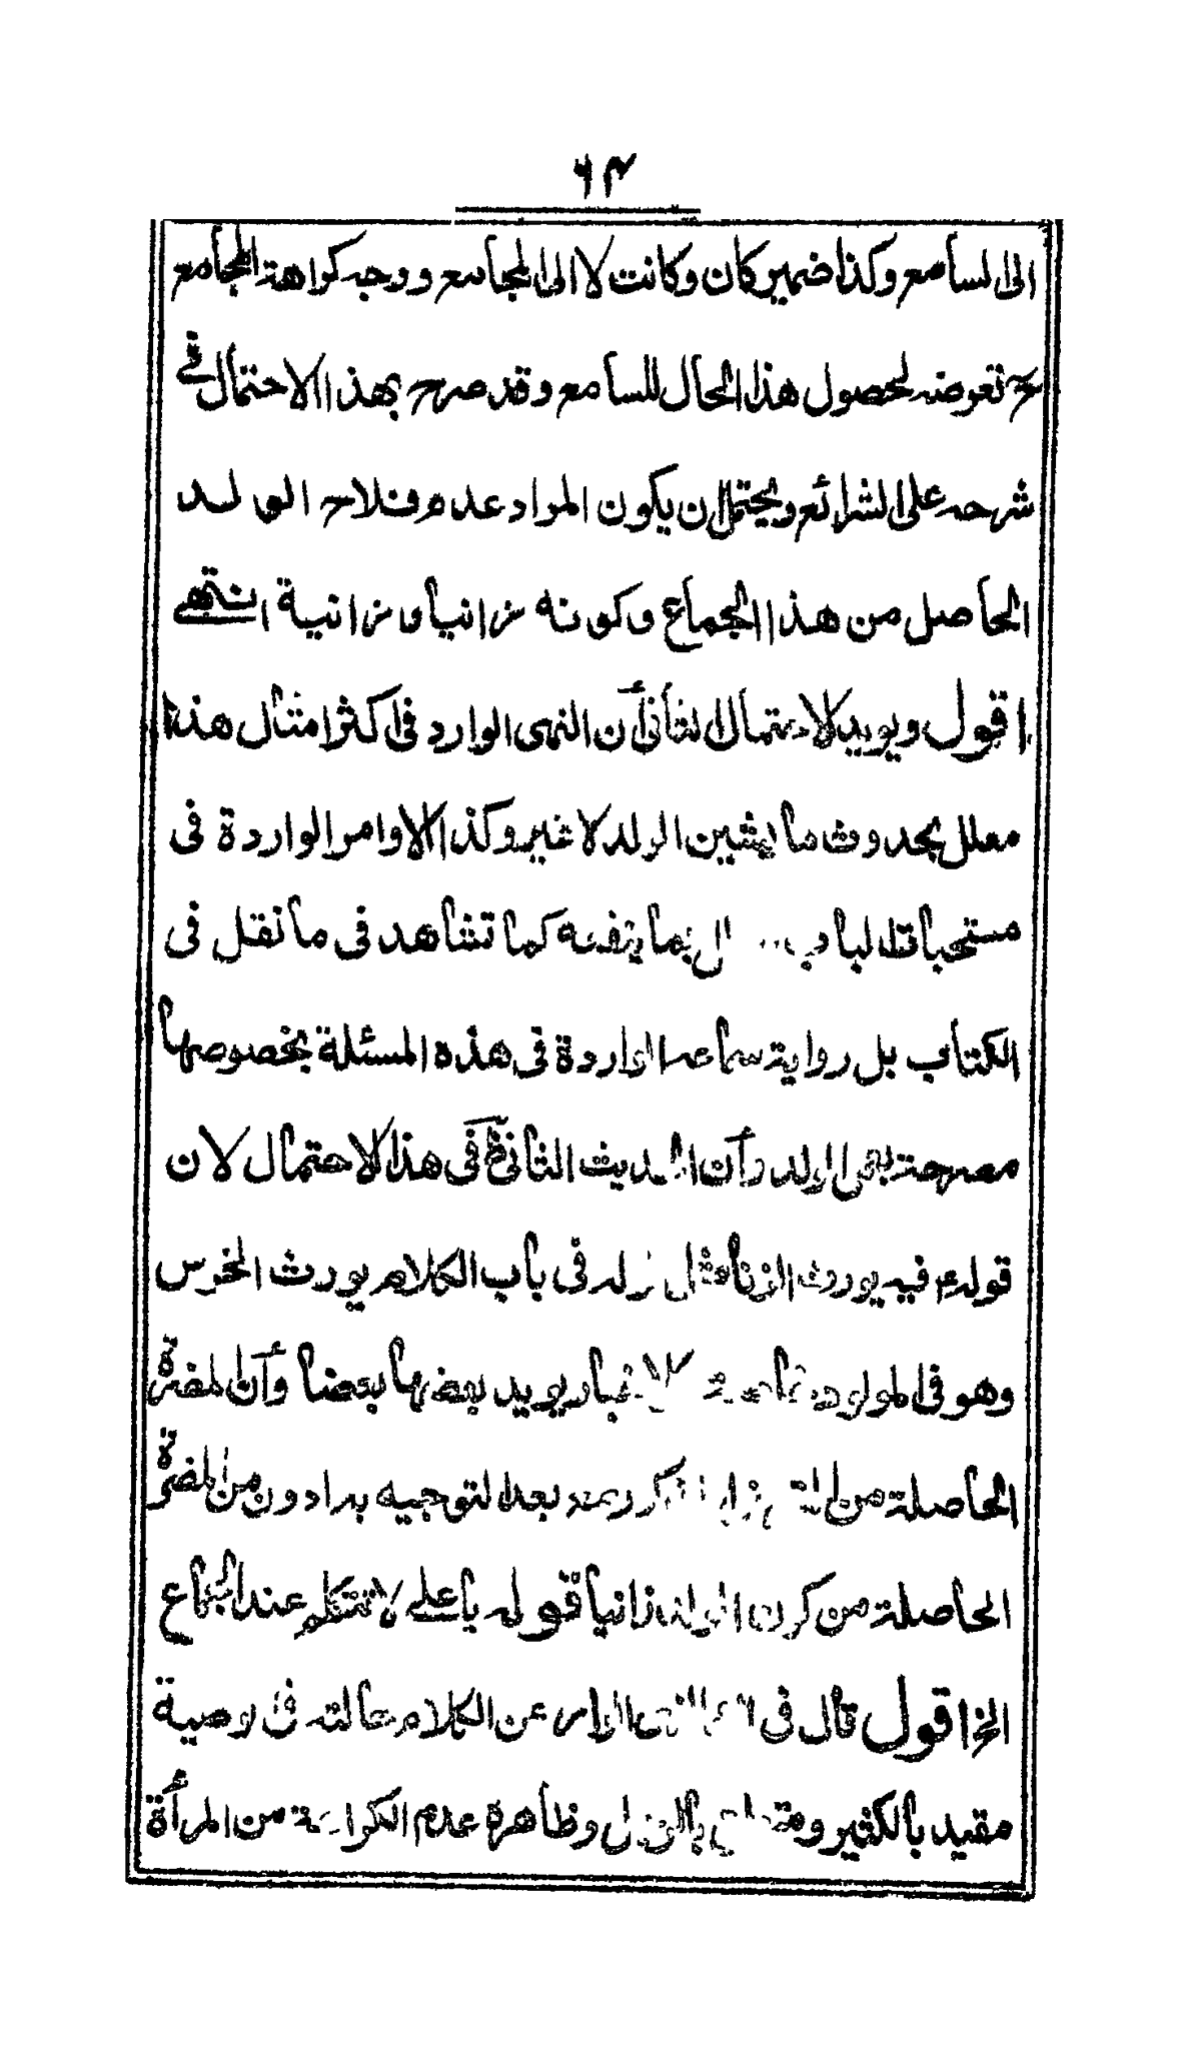 ۶۴
الى السامع وكذا ضمير كان وكانت لا الى المجامع ووجه كراهة المجامع
ح تعرضه لحصول هذا الحال للسامع وقد صرح بهذا الاحتمال فے
شرحه على الشرائع ويحتمل ان يكون المراد عدم فلاح الولد
الحاصل من هذا الجماع وكونه زانيا وزانية انتهے
اقول ويويد الاحتمال الثانى أن النهى الوارد فى اكثر امثال هذا
معلل بحدوث ما يشين الولد لا غير وكذا الاوامر الواردة فى
مستحبات الباب بما ينفعه كما تشاهد فى ما نقل فى
الكتاب بل رواية سماعة الواردة فى هذه المسئلة بخصوصها
مصرحة الولد وأن الحديث الثانى فى هذا الاحتمال لان
قوله ع فيه يورث الزنا مثل قوله فى باب الكلام يورث الخرس
وهو فى المولود يويد بعضها بعضا وأن المضرة
الحاصلة من بعد التوجيه به ادون من المضرة
الحاصلة من كون الولد زانيا قوله يا على لا تتكلم عند الجماع
الخ اقول قال فى عن الكلام حالته فى وصية
مقيد بالكثير وظاهره عدم الكراهة من المرأة